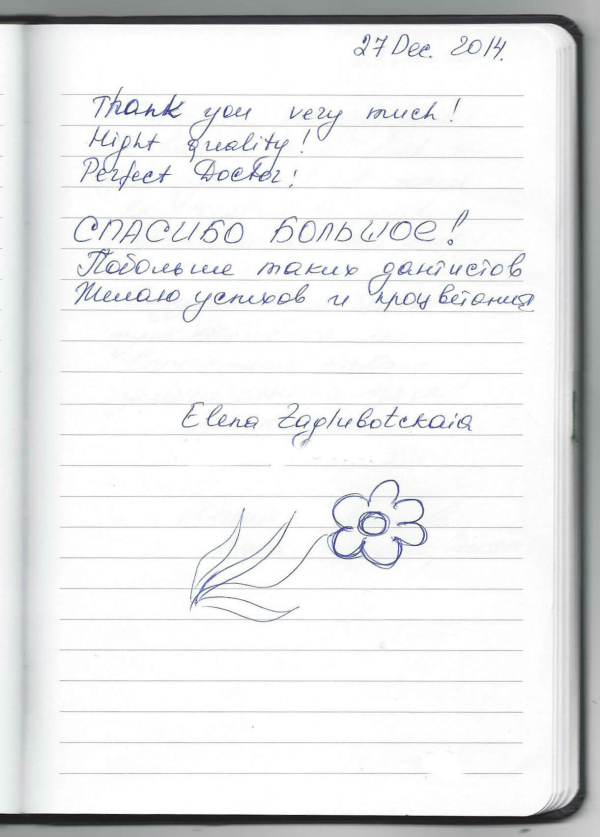 27 Dec. 2014.
Thank you very much!
Hight quality!
Perfect Doctor!
СПАСИБО БОЛЬШОЕ!
Побольше таких дантистов
Желаю успехов и процветания
Elena Zaglubotckaia